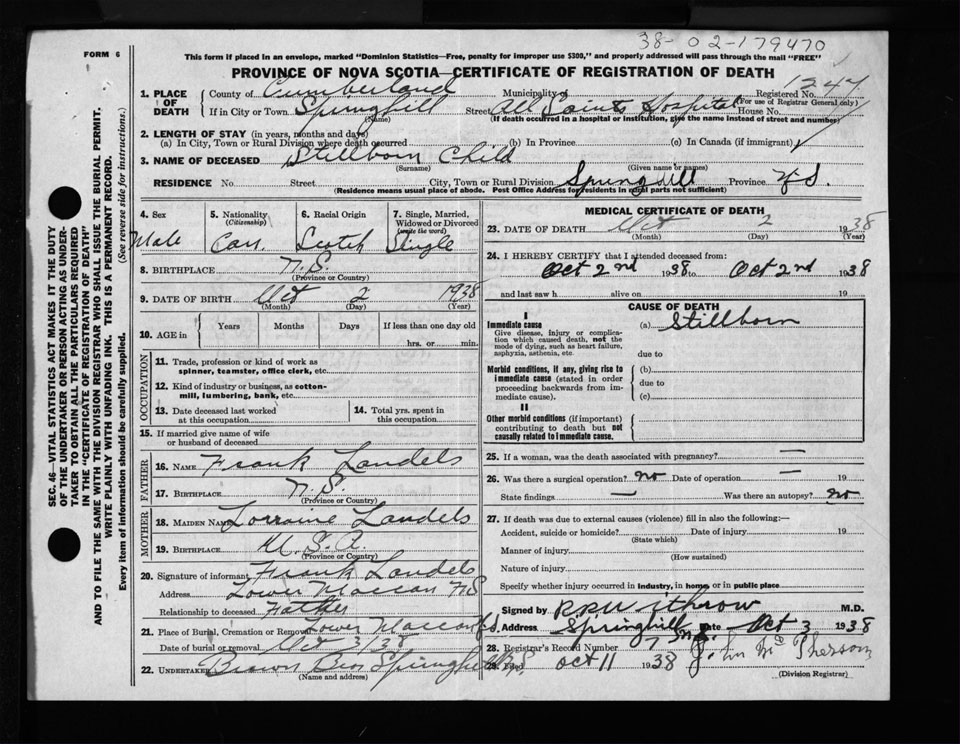 38-02-179470
FORM 6
This form if placed in an envelope, marked "Dominion Statistics—Free, penalty for improper use $300," and properly addressed will pass through the mail "FREE"
PROVINCE OF NOVA SCOTIA—CERTIFICATE OF REGISTRATION OF DEATH
1. PLACE OF DEATH
County of Cumberland Municipality of Registered No. 1247
(For use of Registrar General only)
If in City or Town Springhill Street All Saints Hospital House No.
(Name) (If death occurred in a hospital or institution, give the name instead of street and number)
2. LENGTH OF STAY (in years, months and days)
(a) In City, Town or Rural Division where death occurred (b) In Province (c) In Canada (if immigrant)
3. NAME OF DECEASED Stillborn Child
(Surname) (Given name or names)
RESIDENCE No. Street City, Town or Rural Division Springhill Province N.S.
(Residence means usual place of abode. Post Office Address for residents in rural parts not sufficient)
4. Sex Male
5. Nationality (Citizenship) Can.
6. Racial Origin Scotch
7. Single, Married, Widowed or Divorced (write the word) Single
8. BIRTHPLACE N.S.
(Province or Country)
9. DATE OF BIRTH Oct 2 1938
(Month) (Day) (Year)
10. AGE in Years Months Days If less than one day old
hrs. or min.
OCCUPATION
11. Trade, profession or kind of work as spinner, teamster, office clerk, etc.
12. Kind of industry or business, as cotton-mill, lumbering, bank, etc.
13. Date deceased last worked at this occupation
14. Total yrs. spent in this occupation
15. If married give name of wife or husband of deceased
FATHER
16. NAME Frank Landels
17. BIRTHPLACE N.S.
(Province or Country)
MOTHER
18. MAIDEN NAME Lorraine Landels
19. BIRTHPLACE U.S.A.
(Province or Country)
20. Signature of informant Frank Landels
Address Lower Maccan NS
Relationship to deceased Father
21. Place of Burial, Cremation or Removal Lower Maccan NS
Date of burial or removal Oct 3/38
22. UNDERTAKER Brown Bros Springhill N.S.
(Name and address)
MEDICAL CERTIFICATE OF DEATH
23. DATE OF DEATH Oct 2 1938
(Month) (Day) (Year)
24. I HEREBY CERTIFY that I attended deceased from:
Oct 2nd 1938 to Oct 2nd 1938
and last saw h alive on 19
CAUSE OF DEATH
I
Immediate cause (a) Stillborn
Give disease, injury or complication which caused death, not the mode of dying, such as heart failure, asphyxia, asthenia, etc.
due to
Morbid conditions, if any, giving rise to immediate cause (stated in order proceeding backwards from immediate cause).
(b)
due to
(c)
II
Other morbid conditions (if important) contributing to death but not causally related to immediate cause.
25. If a woman, was the death associated with pregnancy? —
26. Was there a surgical operation? no Date of operation —
State findings — Was there an autopsy? no
27. If death was due to external causes (violence) fill in also the following:—
Accident, suicide or homicide? Date of injury 19
(State which)
Manner of injury
(How sustained)
Nature of injury
Specify whether injury occurred in industry, in home, or in public place
Signed by Withrow M.D.
Address Springhill N.S. Date Oct 3 1938
28. Registrar's Record Number 7
29. Filed Oct 11 1938 John McPherson
(Division Registrar)
SEC. 46—VITAL STATISTICS ACT MAKES IT THE DUTY
OF THE UNDERTAKER OR PERSON ACTING AS UNDER-
TAKER TO OBTAIN ALL THE PARTICULARS REQUIRED
IN THE "CERTIFICATE OF REGISTRATION OF DEATH"
AND TO FILE THE SAME WITH THE DIVISION REGISTRAR WHO SHALL ISSUE THE BURIAL PERMIT.
WRITE PLAINLY WITH UNFADING INK. THIS IS A PERMANENT RECORD.
Every item of information should be carefully supplied. (See reverse side for instructions.)